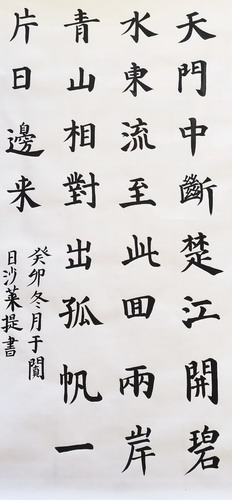 天門中斷楚江開碧
水東流至此回兩岸
青山相對出孤帆一
片日邊来
癸卯冬月于閬
日沙萊提書